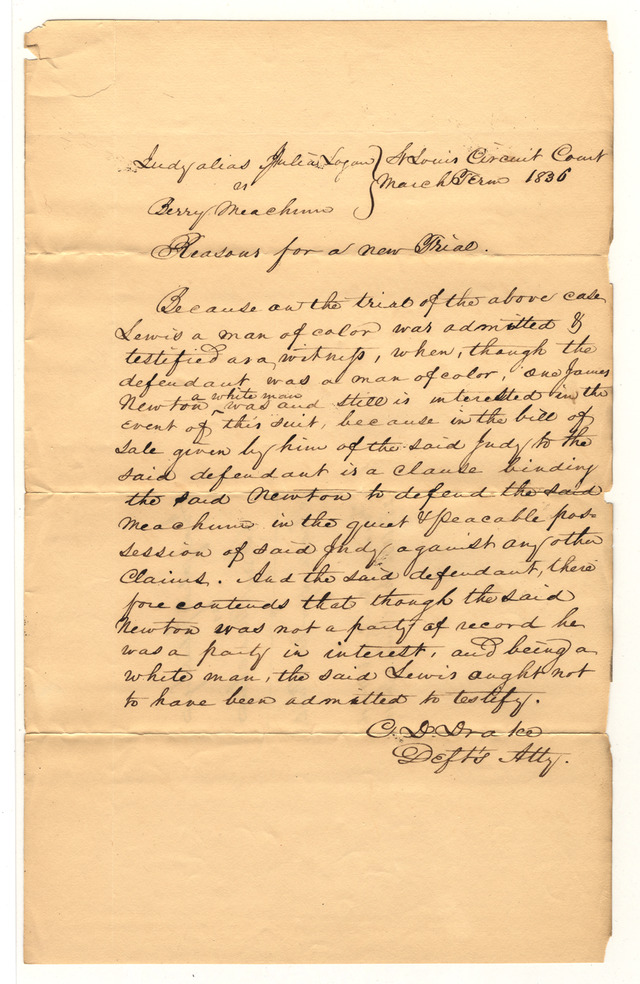 Judy alias Julia Logan } St Louis Circuit Court
vs } March Term 1836
Berry Meachum
Reasons for a new Trial.
Because on the trial of the above case
Lewis a man of color was admitted &
testified as a witness, when, though the
defendant was a man of color, one James
Newton a white man was and still is interested in the
event of this suit, because in the bill of
sale given by him of the said Judy to the
said defendant is a clause binding
the said Newton to defend the said
Meachum in the quiet & peacable pos-
session of said Judy against any other
Claims. And the said defendant, there
fore contends that though the said
Newton was not a party of record he
was a party in interest, and being a
white man, the said Lewis ought not
to have been admitted to testify.
C. D. Drake
Deft's Atty.